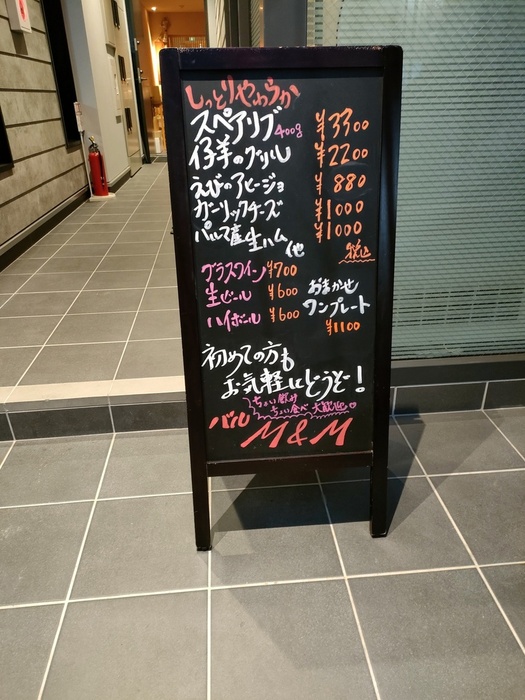 しっとりやわらか
スペアリブ400g ¥3300
仔羊のグリル ¥2200
えびのアヒージョ ¥880
ガーリックチーズ ¥1000
パルマ産生ハム ¥1000
他
税込
グラスワイン ¥700
生ビール ¥600
ハイボール ¥600
おまかせ
ワンプレート
¥1100
初めての方も
お気軽にどうぞ！
ちょい飲み
ちょい食べ 大歓迎♡
バル M&M